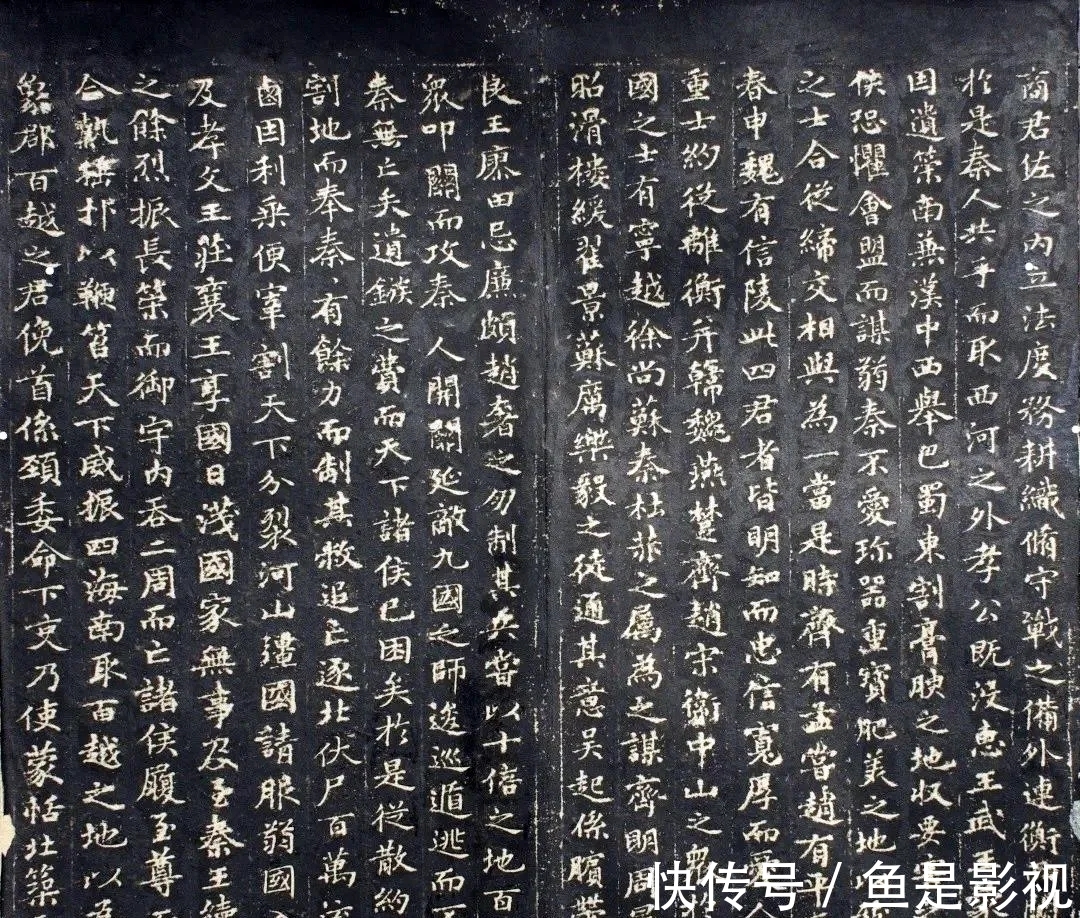 商君佐之内立法度務耕織脩守戰之備外連衡
扵是秦人共手而取西河之外孝公既没恵王武
因遺策南兼漢中西舉巴蜀東割膏腴之地收要害
侯恐懼會盟而謀弱秦不愛珎器重寶肥美之地
之士合從締交相與為一當是時齊有孟嘗趙有平
春申魏有信陵此四君者皆明知而忠信寬厚而愛
重士約從離衡并韓魏燕楚齊趙宋衛中山之衆
國之士有寧越徐尚蘇秦杜赫之屬為之謀齊明周
昭滑樓緩翟景蘇厲樂毅之徒通其意吳起係臏帶
良王廖田忌廉頗趙奢之勿制其兵嘗以十倍之地百
衆叩關而攻秦人開關延敵九國之師逡巡遁逃而
秦無亡矢遺鏃之費而天下諸侯已困矣於是從散約
割地而奉秦有餘力而制其敝追亡逐北伏尸百萬流
國因利乘便宰割天下分裂河山彊國請服弱國
及孝文王莊襄王享國日淺國家無事及至秦王續
之餘烈振長策而御宇内吞二周而亡諸侯履至尊
合執棰拊以鞭笞天下威振四海南取百越之地以為
象郡百越之君俛首係頸委命下吏乃使蒙恬北築
快传号/鱼是影视